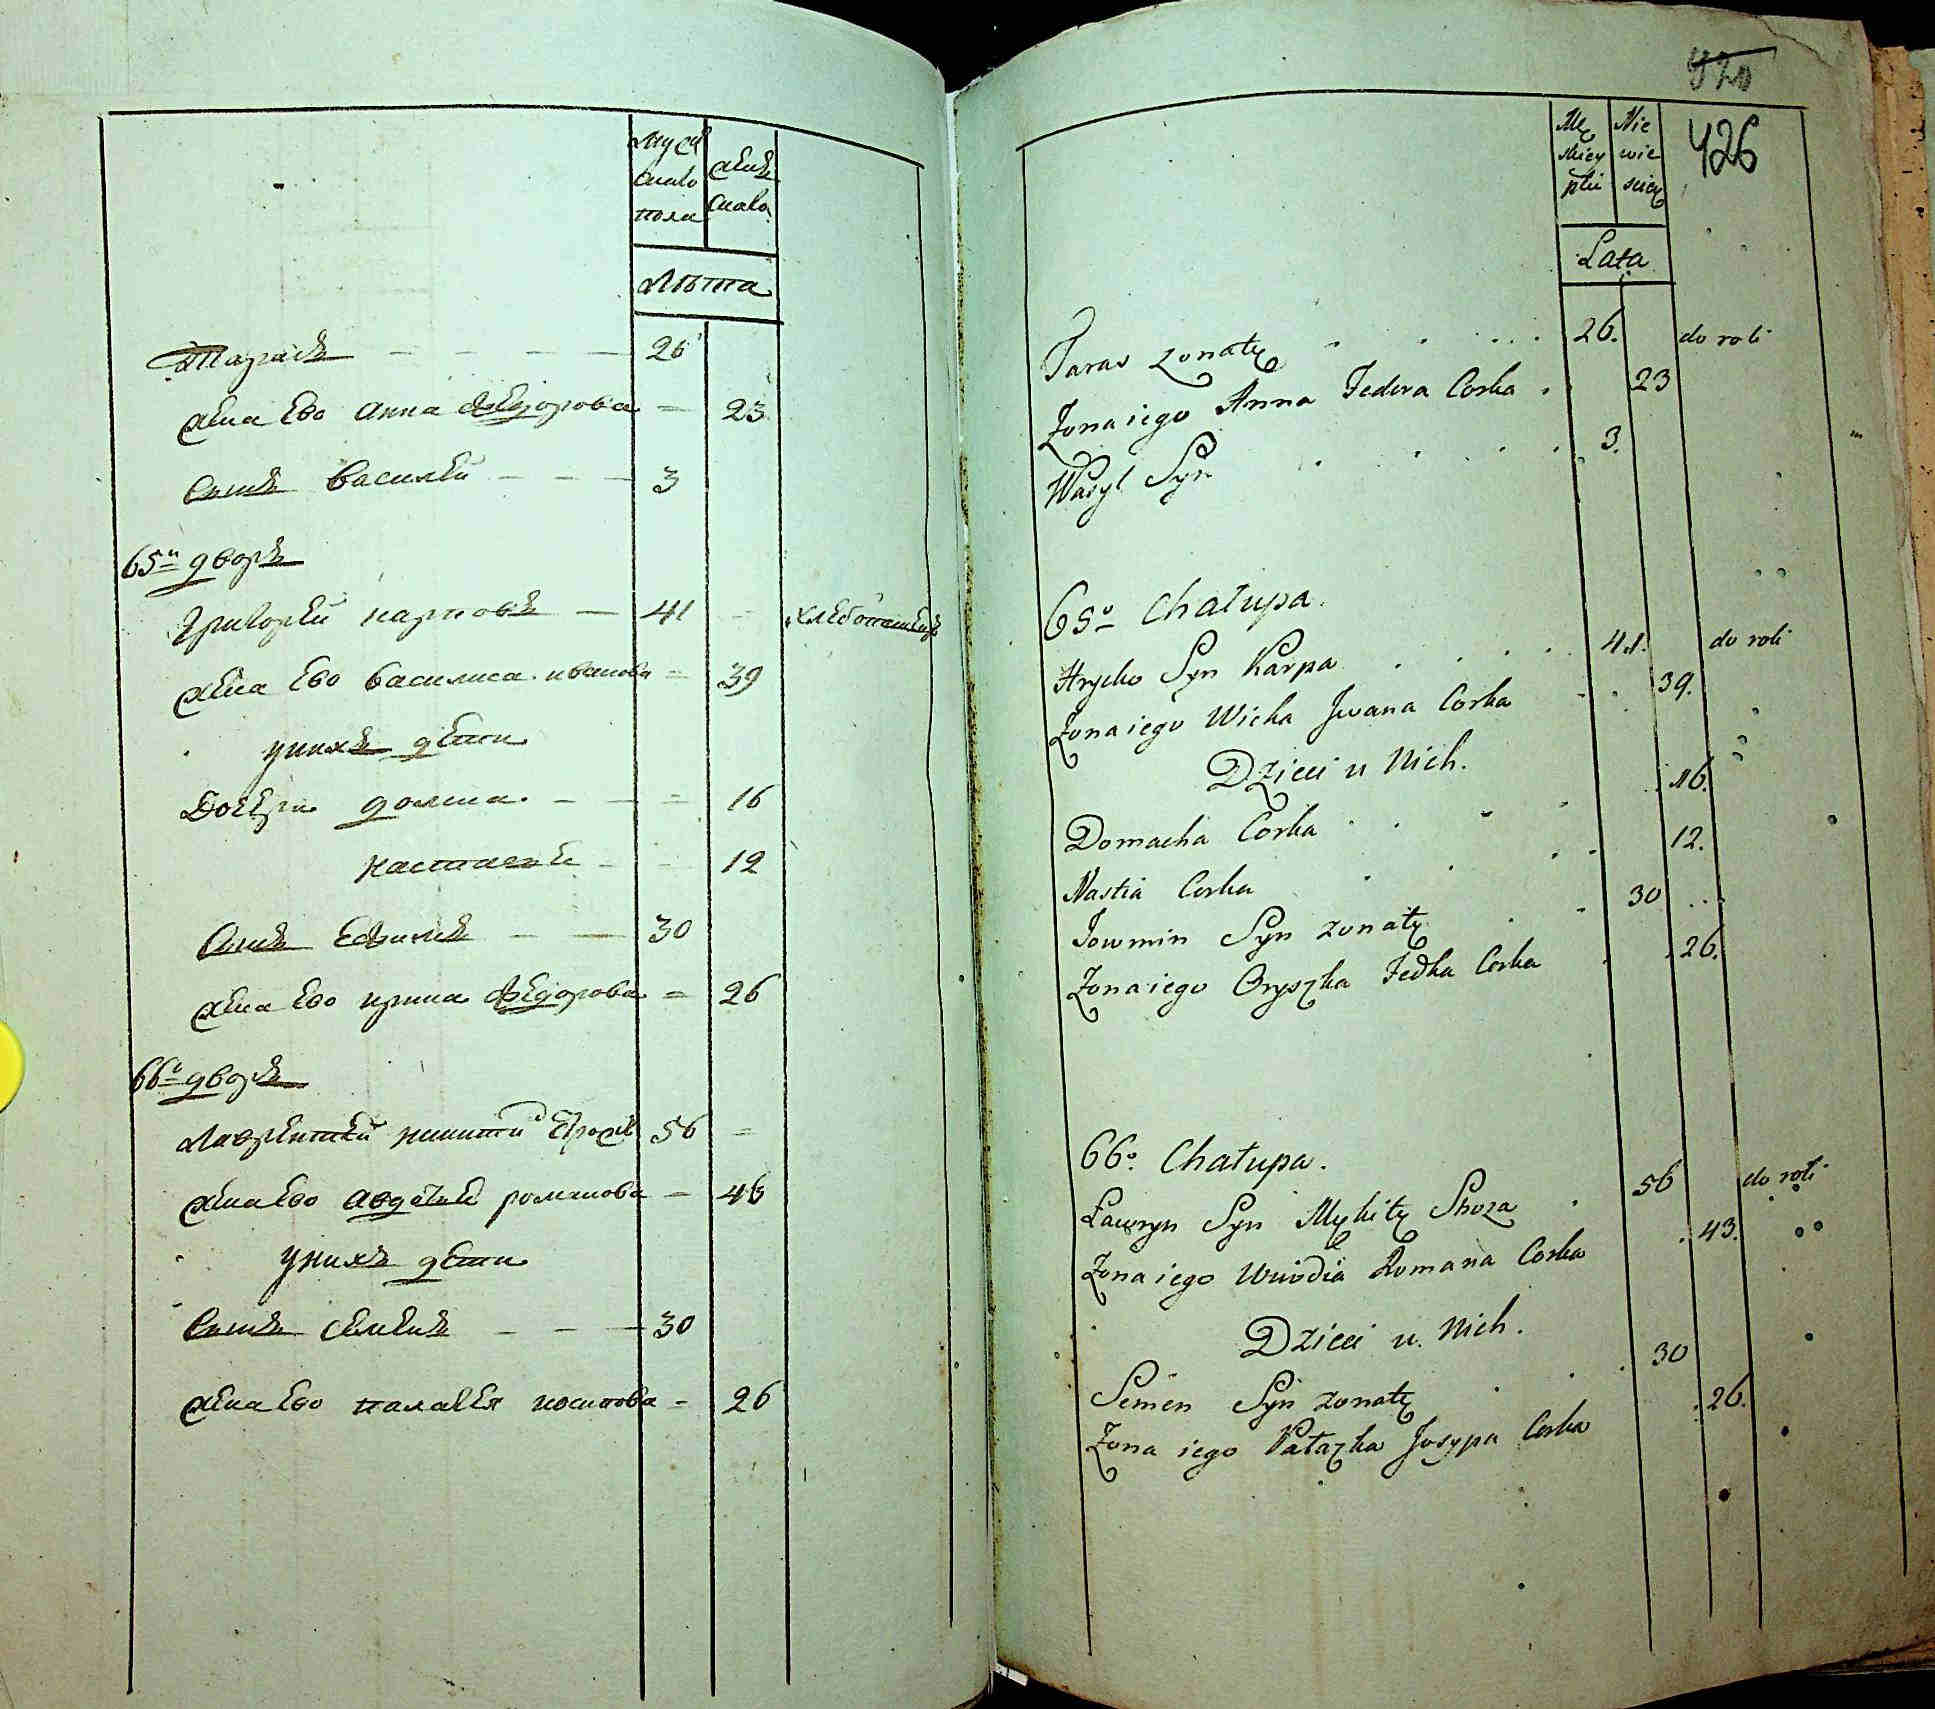 мужескаго пола
женскаго
Лѣта
Тарасъ 26
жена Ево анна Федорова 23
Сынъ василей 3
65й дворъ
Григорей карповъ 41 хлебопашецъ
жена Ево василиса иванова 39
у нихъ дети
Дочери домна 16
настасья 12
Сынъ Ефимъ 30
жена Ево ирина Федорова 26
66й дворъ
Лаврентей никитин 56
жена Ево авдотья романова 43
у нихъ дети
Сынъ Семенъ 30
жена Ево палагея иосипова 26
920
426
Męskiey płci
Niewieściey
Lata
Taras zonaty 26. do roli
Zona iego Anna Fedora Corka 23
Wasyl Syn 3.
65o Chałupa.
Hryćko Syn Karpa 41. do roli
Zona iego Wićka Jwana Corka 39.
Dzieci u Nich.
Domacha Corka 16.
Nastia Corka 12.
Jowmin Syn zonaty 30
Zona iego Oryszka Fedka Corka 26.
66o Chałupa.
Ławryn Syn Mykity Skoza 56 do roli
Zona iego Wiwdia Romana Corka 43.
Dzieci u Nich.
Semen Syn zonaty 30
Zona iego Pałazka Josypa Corka 26.